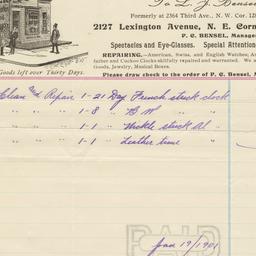 To L. J. Bensel
Formerly at 2364 Third Ave., N. W. Cor. 12
2127 Lexington Avenue, N. E. Corn
P. C. BENSEL, Manage
Spectacles and Eye-Glasses. Special Attention
REPAIRING.—American, Swiss, and English Watches; An
father and Cuckoo Clocks skilfully repaired and warranted. We a
Goods, Jewelry, Musical Boxes.
Goods left over Thirty Days.
Please draw check to the order of P. C. Bensel, M
Clean and Repair 1-21 Day French struck clock
" " " 1-8 " " "
" " " 1-1 " Nickle struck Al "
" " " 1-1 " Leather time "
PAID
Jan 19/1901